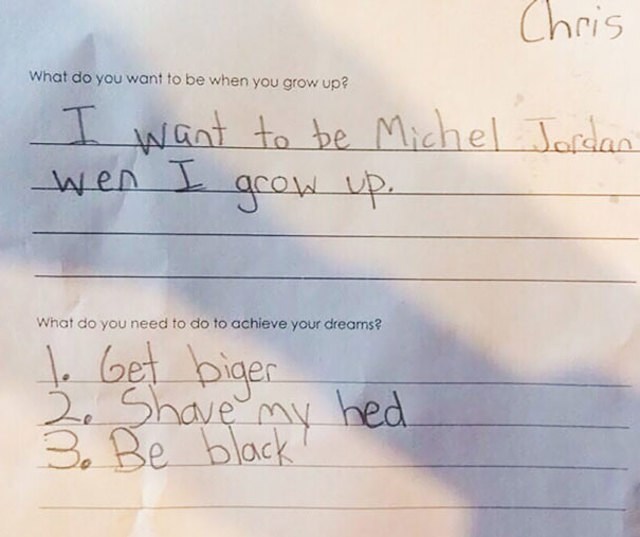 Chris
What do you want to be when you grow up?
I want to be Michel Jordan
wen I grow up.
What do you need to do to achieve your dreams?
1. Get biger
2. Shave my hed
3. Be black